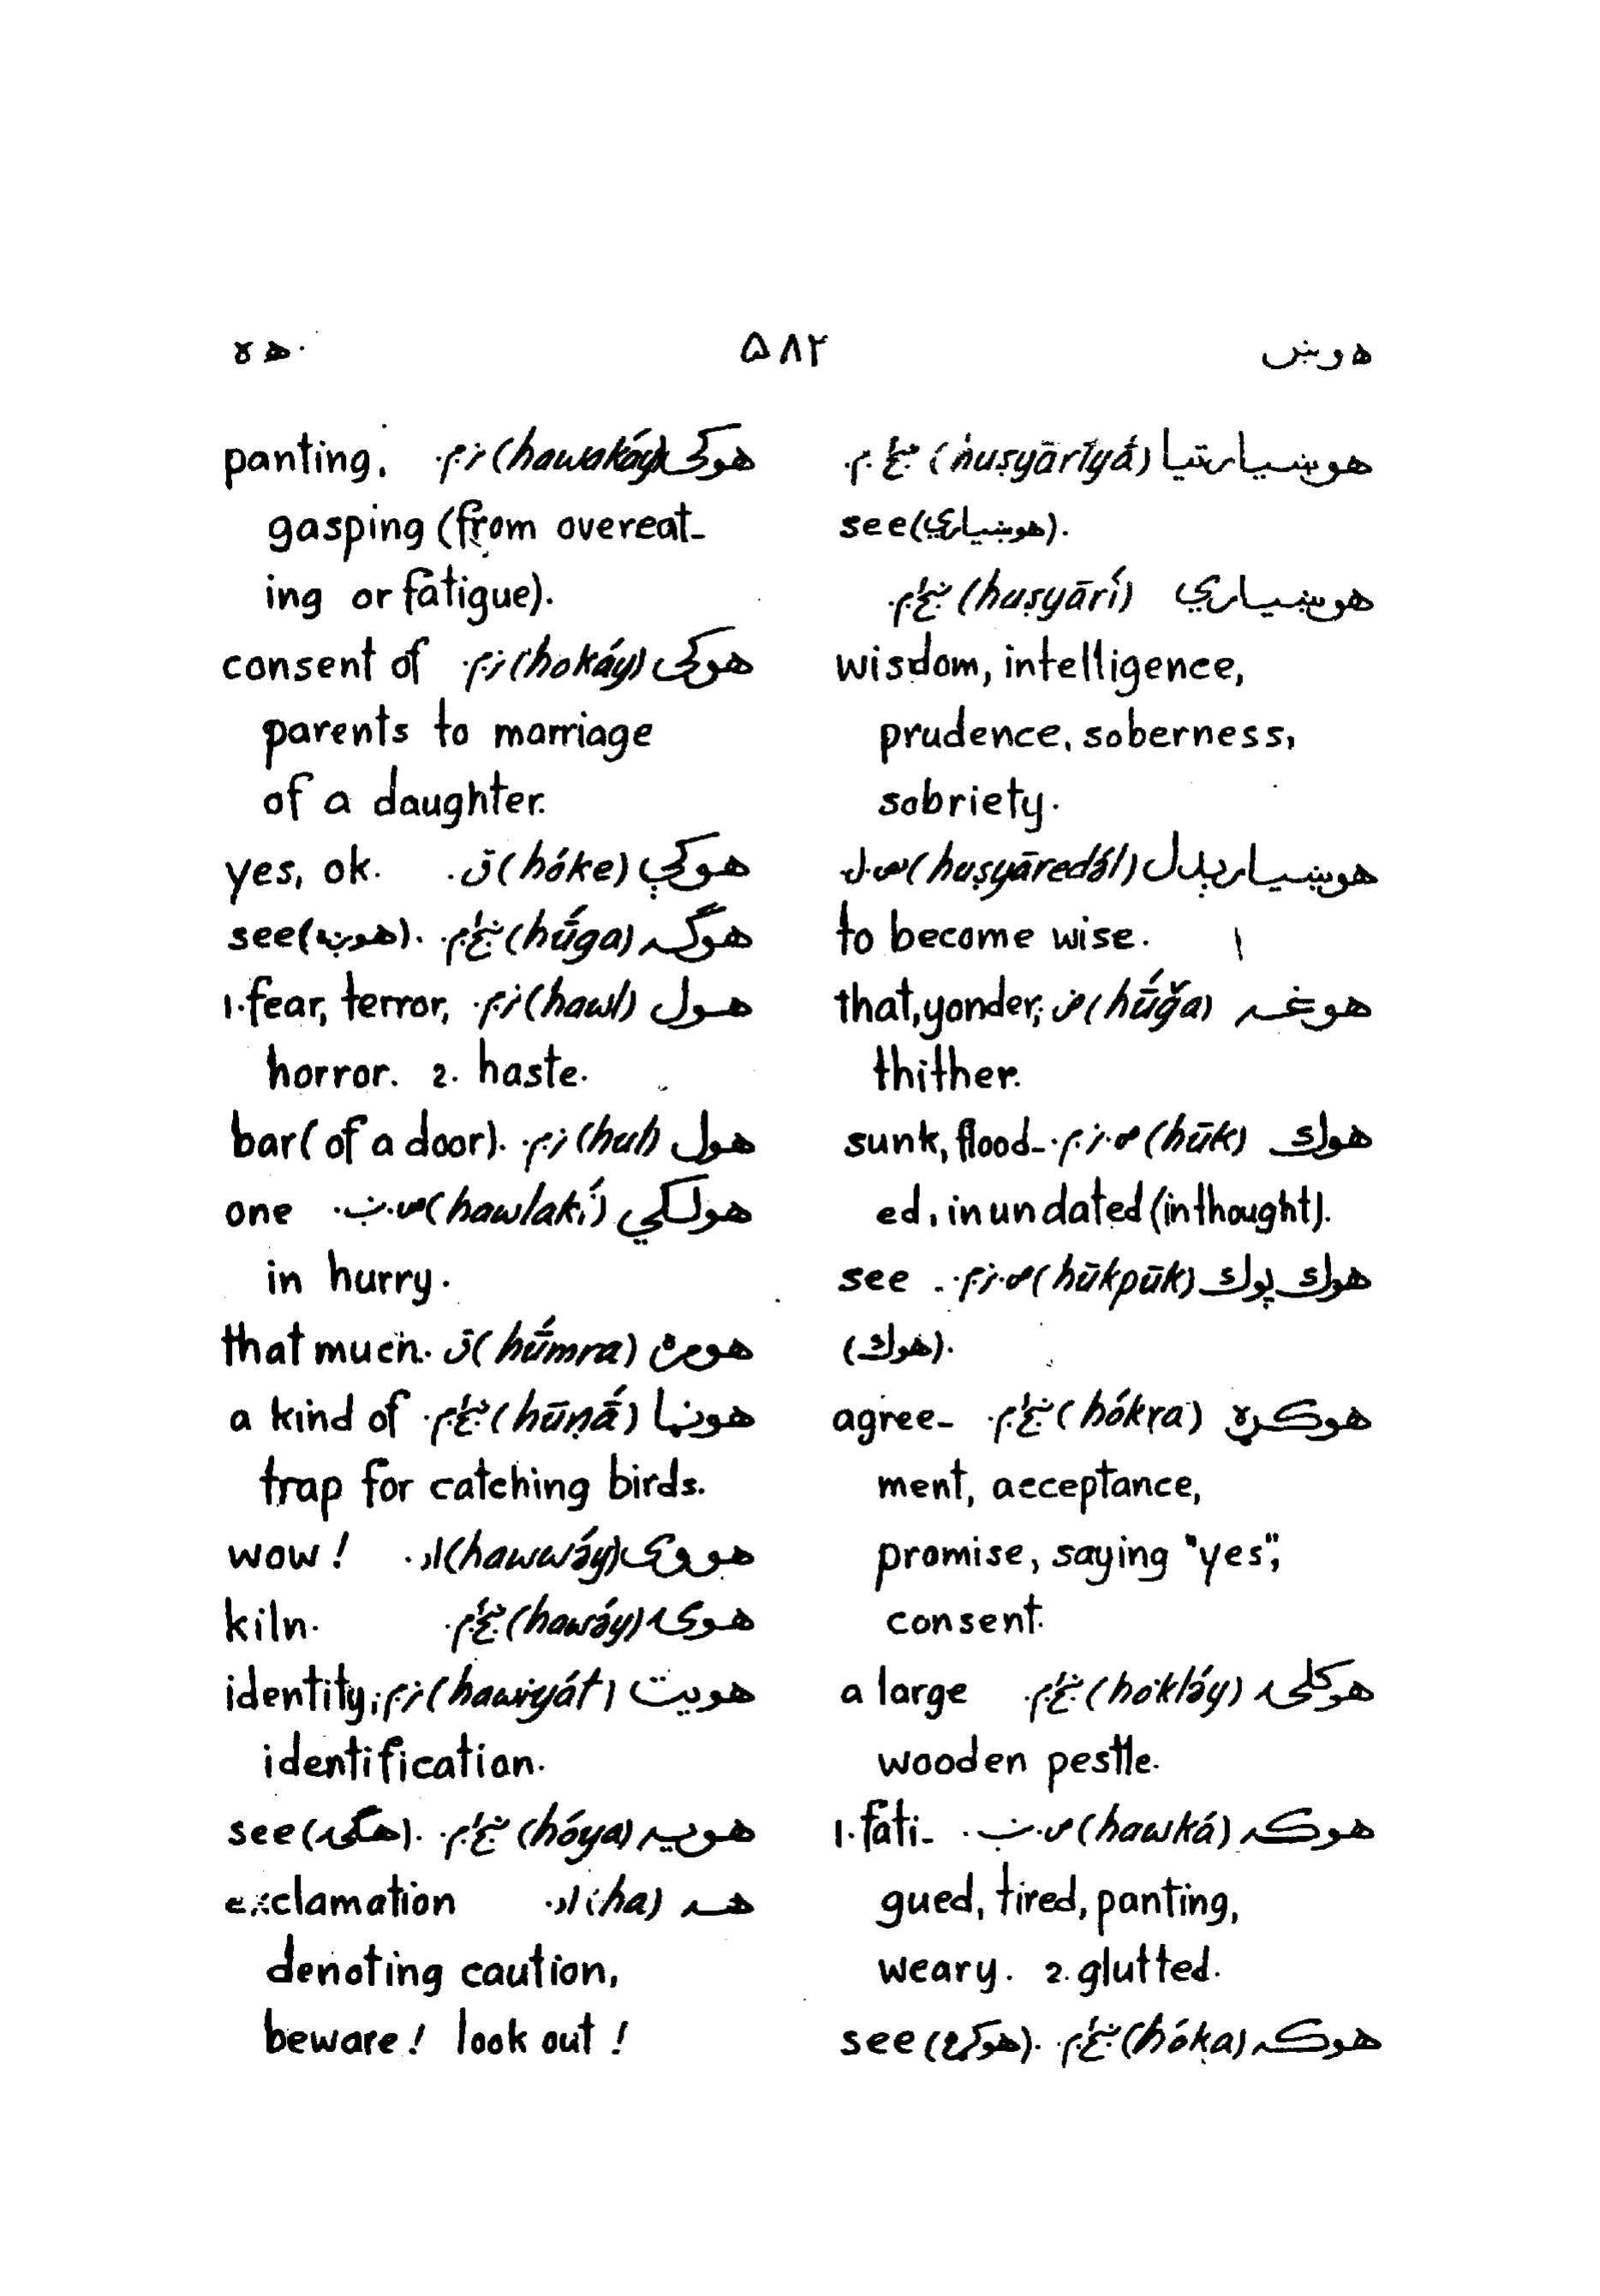 هوښ ۵۸۲ هه
هوښيارتيا (huṣyārtyā́) ښځ. م.
see (هوښياري).
هوښياري (huṣyārí) ښځ. م.
wisdom, intelligence,
prudence, soberness,
sobriety.
هوښيارېدل (huṣyāredə́l) ص. ل.
to become wise.
هوغه (hū́ğa) ض. that, yonder;
thither.
هوک (hūk) ص. ز. م. sunk, flood-
ed, inundated (in thought).
هوک پوک (hūkpūk) ص. ز. م. see
(هوک).
هوکړه (hókṛa) ښځ. م. agree-
ment, acceptance,
promise, saying "yes",
consent.
هوکلۍ (hokləy) ښځ. م. a large
wooden pestle.
هوکه (hawká) ص. ښ. 1. fati-
gued, tired, panting,
weary. 2. glutted.
هوکه (hóka) ښځ. م. see (هوکړه).
هوکی (hawakáy) ز. م. panting,
gasping (from overeat-
ing or fatigue).
هوکی (hokáy) ز. م. consent of
parents to marriage
of a daughter.
هوکې (hóke) ق. yes, ok.
هوګه (hū́ga) ښځ. م. see (هوږه).
هول (hawl) ز. م. 1. fear, terror,
horror. 2. haste.
هول (hul) ز. م. bar (of a door).
هولکي (hawlakí) ص. ښ. one
in hurry.
هومره (hū́mra) ق. that much.
هوڼا (hūṇā́) ښځ. م. a kind of
trap for catching birds.
هووی (hawwáy) اد. wow!
هوۍ (hawə́y) ښځ. م. kiln.
هويت (hawiyát) ز. م. identity;
identification.
هويه (hóya) ښځ. م. see (هګۍ).
هه (ha) اد. exclamation
denoting caution,
beware! look out!